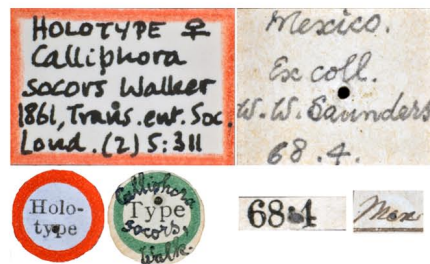 HOLOTYPE ♀
Calliphora
socors Walker
1861, Trans. ent. Soc
Lond. (2) 5:311
Mexico.
Ex coll.
W. W. Saunders
68.4.
Holo-
type
Calliphora
Type
socors,
Walk.
68.4
Mex